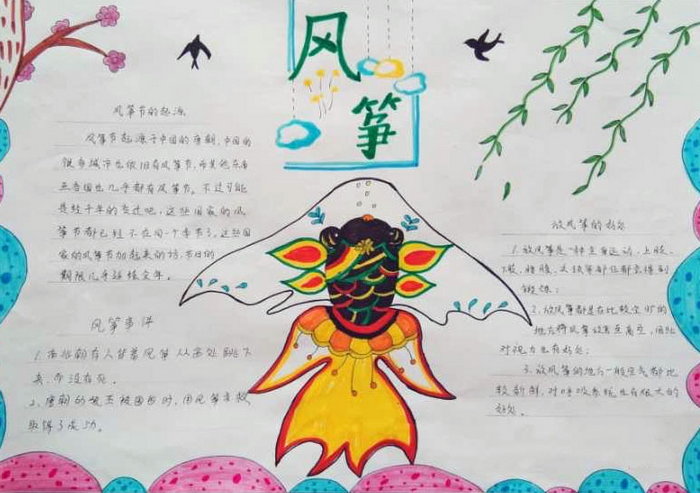 风筝
风筝节的起源
风筝节起源于中国的唐朝,中国的
很多城市也依旧有风筝节,而其他东南
亚各国也几乎都有风筝节。不过可能
是经千年的变迁吧,这些国家的风
筝节都已经不在同一个季节了。这些国
家的风筝节加起来的话,节日的
期限几乎延续全年。
风筝事件
有人背着风筝从高处跳下
来,而没有死。
2、唐朝的 被围困时,用风筝求救
取得了成功。
放风筝的好处
1、放风筝是一种全身运动,上肢、
下肢、腰腹、头颈等部位都会得到
锻炼;
2、放风筝都是在比较空旷的
地方将风筝放高至高空,因此
对视力也有好处;
3、放风筝的地方一般空气都比
较新鲜,对呼吸系统也有很大的
好处。